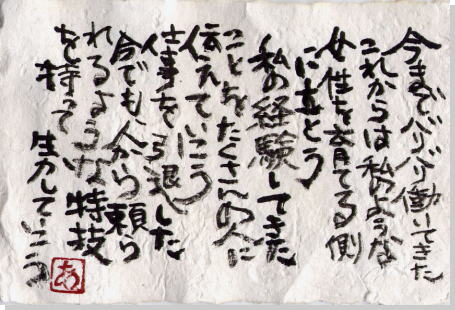 今までバリバリ働いてきた
これからは私のような
女性を育てる側
に立とう
私の経験してきた
ことをたくさんの人に
伝えていこう
仕事を引退した
今でも人から頼ら
れるような特技
を持って生かしていこう
あ